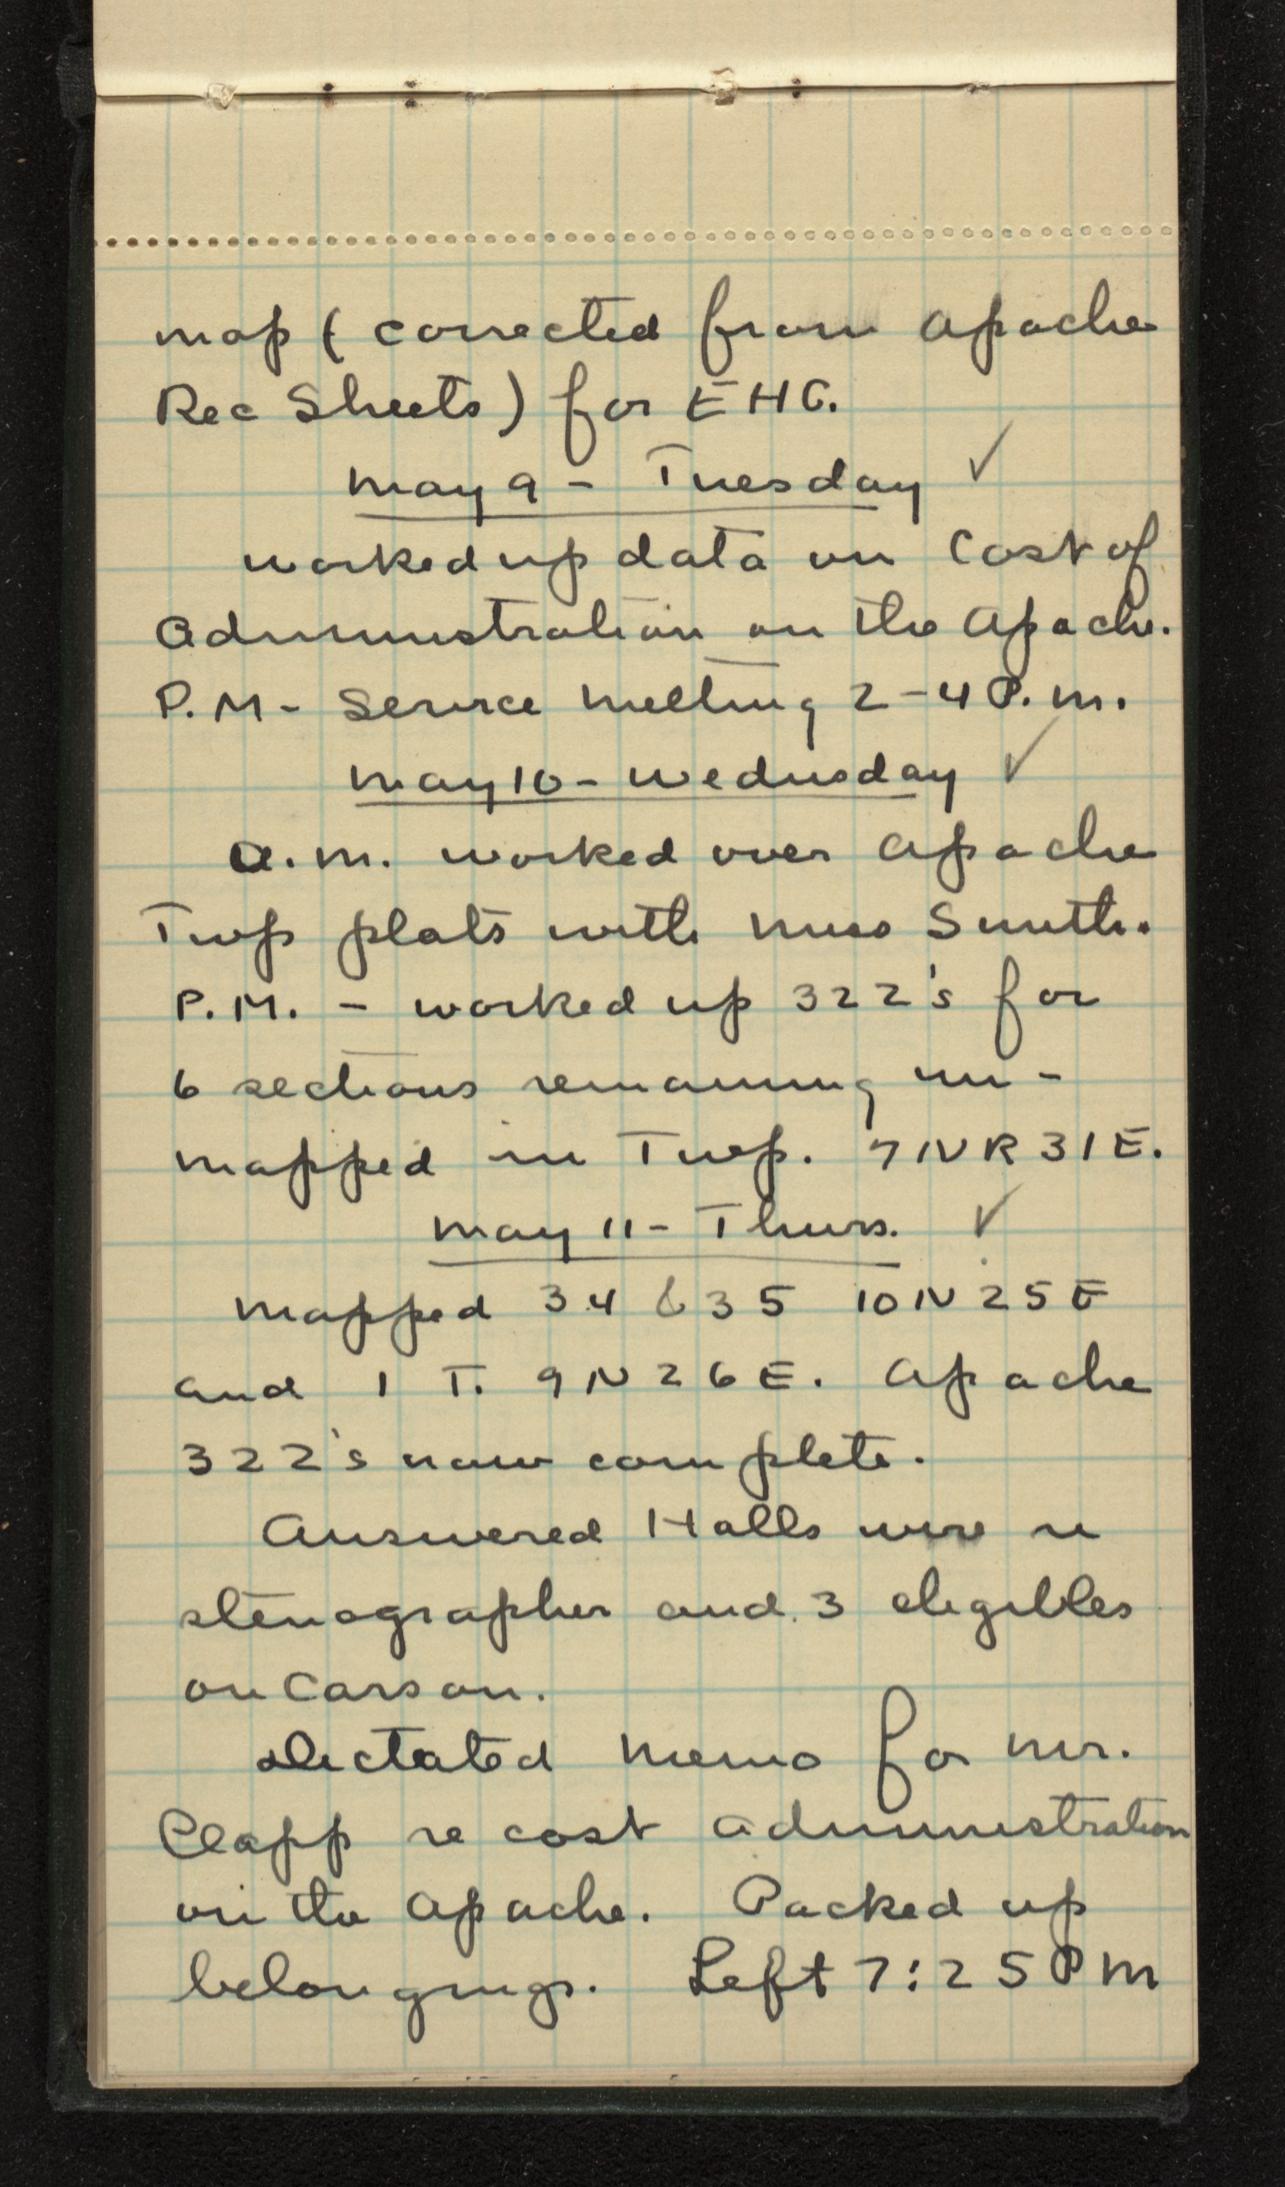 map (corrected from Apache
Rec Sheets) for EHC.
May 9 - Tuesday ✓
Worked up data on Cost of
Administration on the Apache.
P.M - Service Meeting 2-4 P.m.
May 10 - Wednesday ✓
a.m. worked over Apache
Twp plats with Miss Smith.
P.M. - worked up 322's for
6 sections remaining un-
mapped in Twp. 7 N R 31 E.
May 11 - Thurs. ✓
Mapped 34 & 35 10 N 25 E
and 1 T. 9 N 26 E. Apache
322's now complete.
Answered Halls wire re
stenographer and 3 eligibles
on Carson.
Dictated Memo for Mr.
Clapp re cost administration
on the Apache. Packed up
belongings. Left 7:25 P M